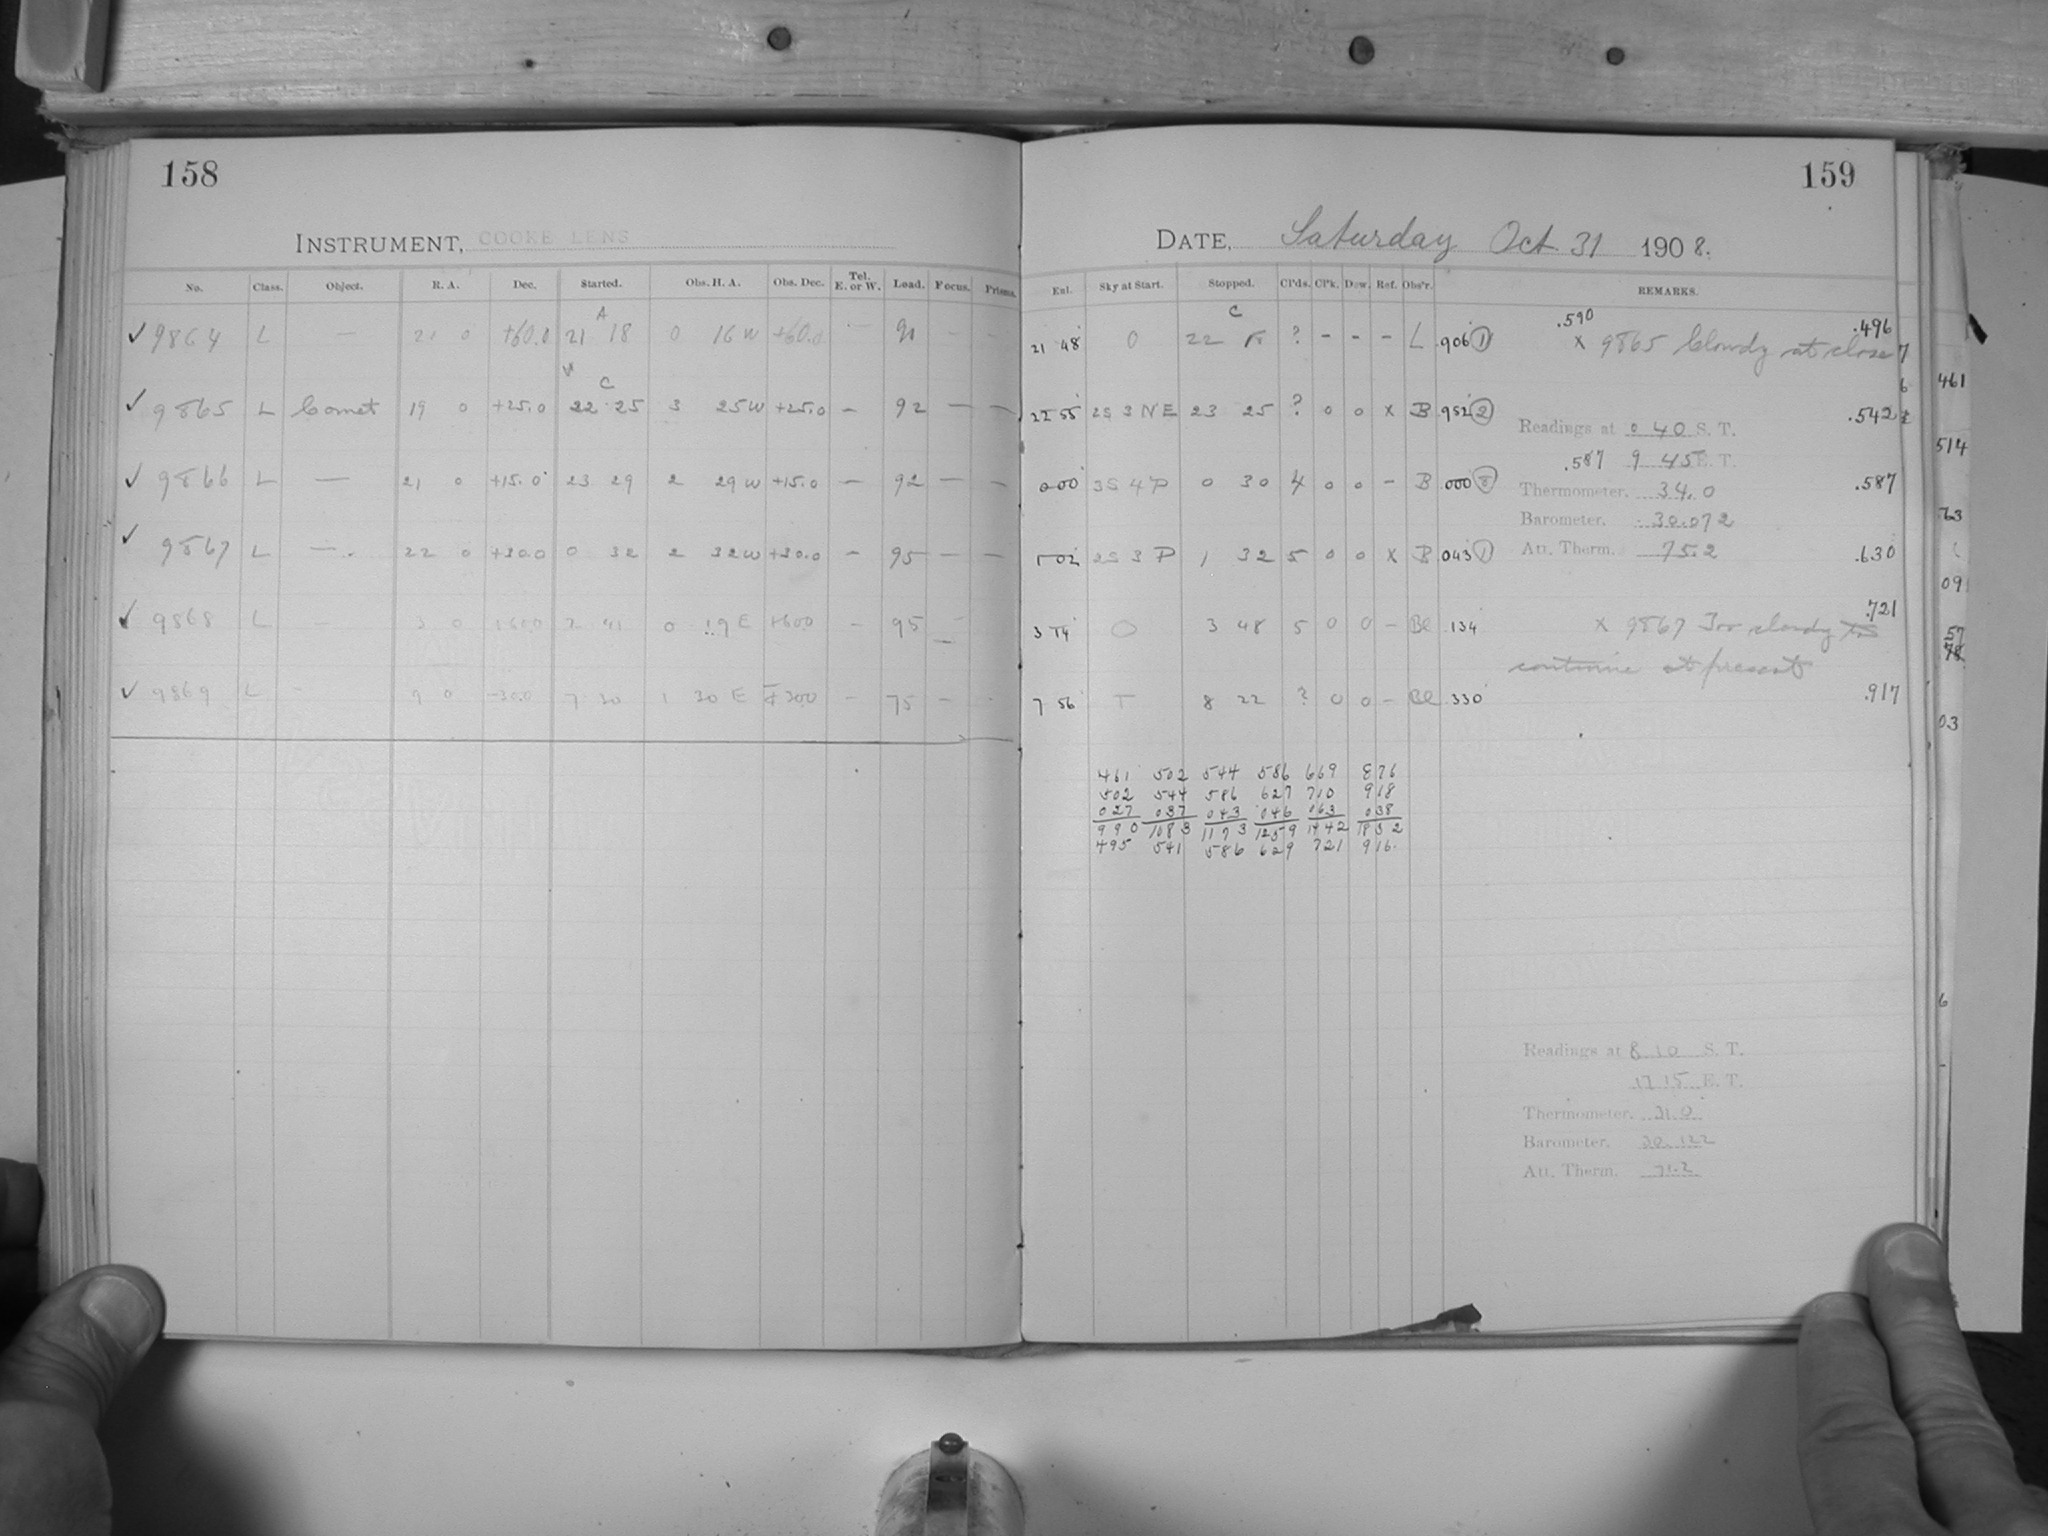 158
INSTRUMENT, COOKE LENS
No. Class. Object. R. A. Dec. Started. Obs. H. A. Obs. Dec. Tel. E. or W. Load. Focus. Prisms.
A
✓ 9864 L — 21 0 +60.0 21 18 0 16 W +60.0 — 90 — —
C
✓ 9865 L Comet 19 0 +25.0 22 25 3 25 W +25.0 — 92 — —
✓ 9866 L — 21 0 +15.0 23 29 2 29 W +15.0 — 92 — —
✓ 9867 L — 22 0 +30.0 0 32 2 32 W +30.0 — 95 — —
✓ 9868 L - 3 0 +60.0 2 41 0 19 E +60.0 — 95 —
✓ 9869 L - 9 0 -30.0 7 30 1 30 E 30.0 — 75 — -
159
DATE, Saturday Oct 31 1908.
Enl. Sky at Start. Stopped. Cl'ds. Cl'k. Dew. Ref. Obs'r. REMARKS.
C
21 48 0 22 ? - - - L .906 (1) .590 .496
x 9865 Cloudy at close
22 55 2S 3 NE 23 25 ? 0 0 x B 952 (2) .542
Readings at 0 40 S. T.
.587 9 45 E. T.
0 00 3S 4 P 0 30 4 0 0 - B .000 .587
Thermometer. 34.0
Barometer. 30.072
1 02 2S 3 P 1 32 5 0 0 x B 043 (1) .630
Att. Therm. 75.2
3 14 0 3 48 5 0 0 - Be .134 .721
x 9867 Too cloudy to
continue at present
7 56 T 8 22 ? 0 0 - Be 330 .917
461 502 544 586 669 876
502 544 586 627 710 918
027 037 043 046 063 038
990 1083 1173 1259 1442 1832
495 541 586 629 721 916.
Readings at 8 10 S. T.
17 15 E. T.
Thermometer. 31.0
Barometer. 30.122
Att. Therm. 71.2
461
514
63
09
57
78
03
6